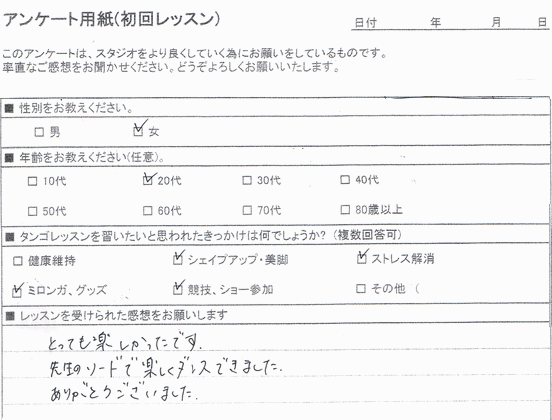 アンケート用紙(初回レッスン)
日付 年 月 日
このアンケートは、スタジオをより良くしていく為にお願いをしているものです。
率直なご感想をお聞かせください。どうぞよろしくお願いいたします。
■ 性別をお教えください。
□ 男 ☑ 女
■ 年齢をお教えください(任意)。
□ 10代 ☑ 20代 □ 30代 □ 40代
□ 50代 □ 60代 □ 70代 □ 80歳以上
■ タンゴレッスンを習いたいと思われたきっかけは何でしょうか? (複数回答可)
□ 健康維持 ☑ シェイプアップ・美脚 ☑ ストレス解消
☑ ミロンガ、グッズ ☑ 競技、ショー参加 □ その他 (
■ レッスンを受けられた感想をお願いします
とっても楽しかったです.
先生のリードで楽しくダンスできました.
ありがとうございました.